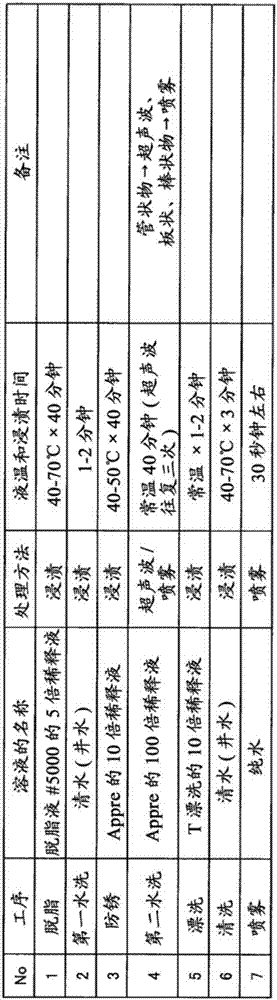 No 工序 溶液的名称 处理方法 液温和浸渍时间 备注
1 脱脂 脱脂液 #5000 的 5 倍稀释液 浸渍 40-70℃ × 40 分钟
2 第一水洗 清水 ( 井水 ) 浸渍 1-2 分钟
3 防锈 Appre 的 10 倍稀释液 浸渍 40-50℃ × 40 分钟
4 第二水洗 Appre 的 100 倍稀释液 超声波 / 喷雾 常温 40 分钟 ( 超声波往复三次 ) 管状物→超声波、板状、棒状物→喷雾
5 漂洗 T 漂洗的 10 倍稀释液 浸渍 常温 × 1-2 分钟
6 清洗 清水 ( 井水 ) 浸渍 40-70℃ × 3 分钟
7 喷雾 纯水 喷雾 30 秒钟左右